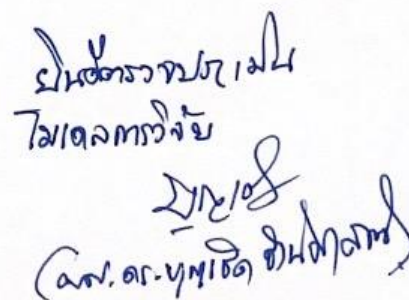 ยินดีตรวจประเมิน
โมเดลการวิจัย
(ผศ.ดร.บุญเชิด